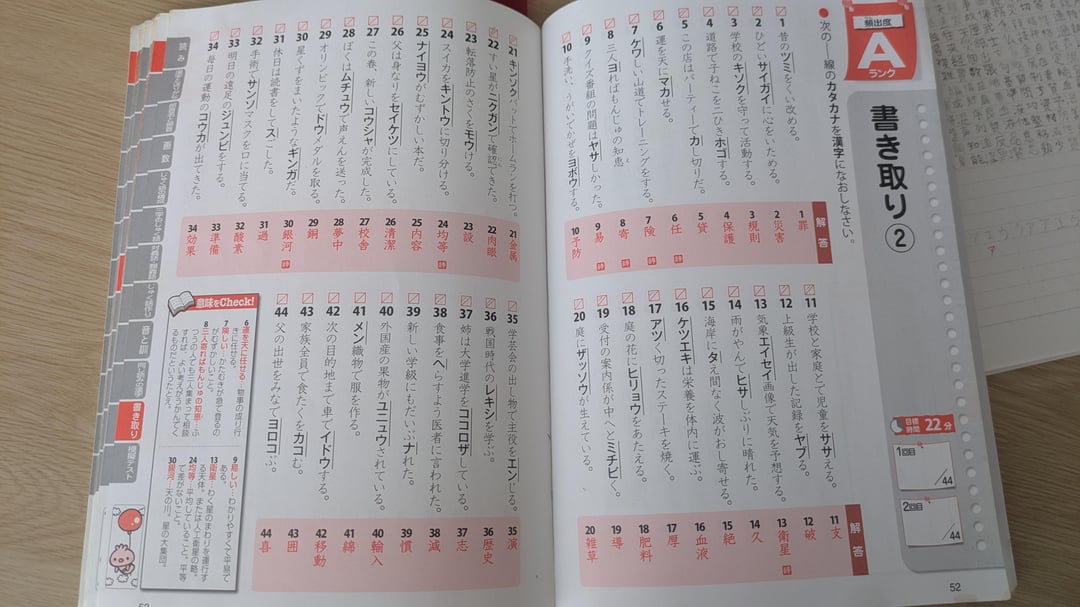 頻出度
A
ランク
書き取り②
次の―線のカタカナを漢字になおしなさい。
1 昔のツミをくい改める。
2 ひどいサイガイに心をいためる。
3 学校のキソクを守って活動する。
4 道路で子ねこを二ひきホゴする。
5 この店はパーティーでカし切りだ。
6 運を天にマカせる。
7 ケワしい山道でトレーニングをする。
8 三人ヨればもんじゅの知恵
9 クイズ番組の問題はヤサしかった。
10 手洗い、うがいでかぜをヨボウする。
解答
1 罪
2 災害
3 規則
4 保護
5 貸
6 任
7 険
8 寄
9 易
10 予防
11 学校と家庭とで児童をササえる。
12 上級生が出した記録をヤブる。
13 気象エイセイ画像で天気を予想する。
14 雨がやんでヒサしぶりに晴れた。
15 海岸にタえ間なく波がおし寄せる。
16 ケツエキは栄養を体内に運ぶ。
17 アツく切ったステーキを焼く。
18 庭の花にヒリョウをあたえる。
19 受付の案内係が中へとミチビく。
20 庭にザッソウが生えている。
解答
11 支
12 破
13 衛星
14 久
15 絶
16 血液
17 厚
18 肥料
19 導
20 雑草
目標時間 22分
1回目
/44
2回目
/44
52
21 キンゾクバットでホームランを打つ。
22 すい星がニクガンで確認できた。
23 転落防止のさくをモウける。
24 スイカをキントウに切り分ける。
25 ナイヨウがむずかしい本だ。
26 父は身なりをセイケツにしている。
27 この春、新しいコウシャが完成した。
28 ぼくはムチュウで声えんを送った。
29 オリンピックでドウメダルを取る。
30 星くずをまいたようなギンガだ。
31 休日は読書をしてスごした。
32 手術でサンソマスクを口に当てる。
33 明日の遠足のジュンビをする。
34 毎日の運動のコウカが出てきた。
21 金属
22 肉眼
23 設
24 均等
25 内容
26 清潔
27 校舎
28 夢中
29 銅
30 銀河
31 過
32 酸素
33 準備
34 効果
35 学芸会の出し物で主役をエンじる。
36 戦国時代のレキシを学ぶ。
37 姉は大学進学をココロザしている。
38 食事をヘらすよう医者に言われた。
39 新しい学級にもだいぶナれた。
40 外国産の果物がユニュウされている。
41 メン織物で服を作る。
42 次の目的地まで車でイドウする。
43 家族全員で食たくをカコむ。
44 父の出世をみなでヨロコぶ。
35 演
36 歴史
37 志
38 減
39 慣
40 輸入
41 綿
42 移動
43 囲
44 喜
意味をCheck!
6 運を天に任せる…物事の成り行きに任せる。
7 険しい…かたむきが急で登るのがむずかしいこと。
8 三人寄ればもんじゅの知恵…ふつうの人でも三人集まって相談すれば、よい考えがうかんでくるものだといったとえ。
9 易しい…わかりやすくて平易である。
13 衛星…わく星のまわりを運行する天体。または人工衛星の略。
24 均等…平均していること。平等で差がないこと。
30 銀河…天の川。星の大集団。
読み
画数
音と訓
書き取り
模擬テスト